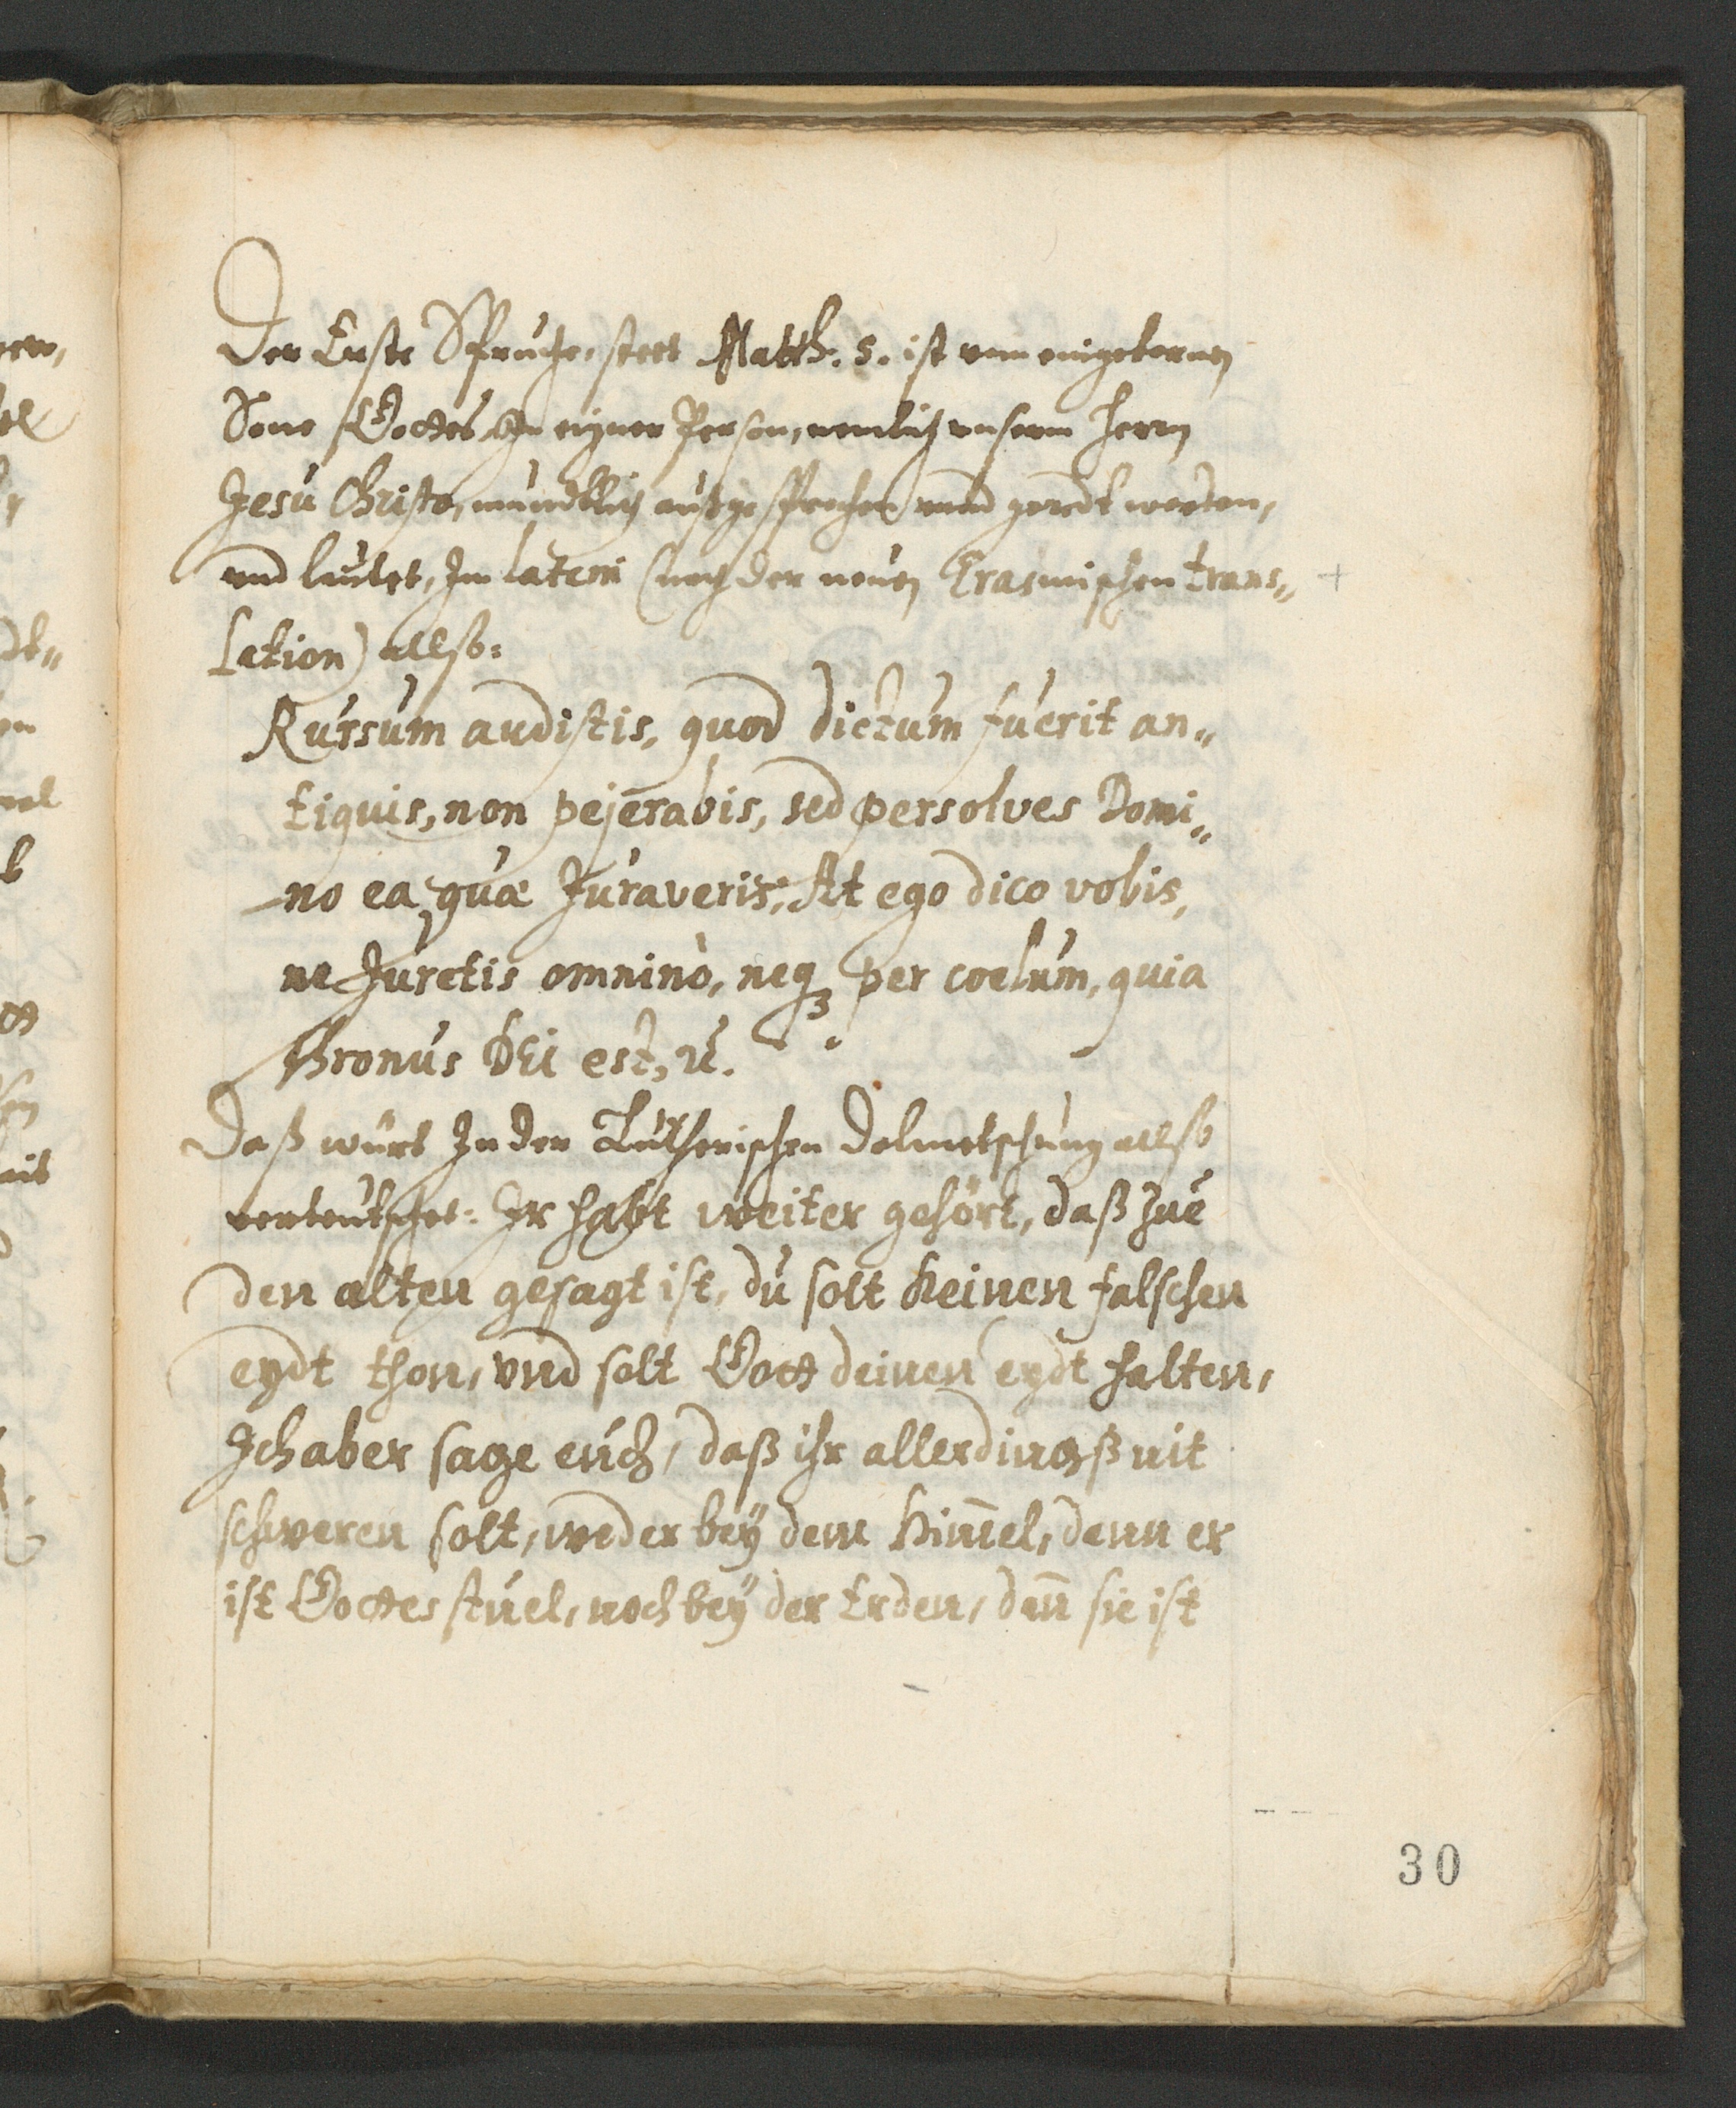 Der Erste Spruche, steet Matth. 5. ist vom eingebornen
Sone Gottes In eigner Person, nemlich unserm Herrn
Jesu Christo, mündtlich außgesprochen unnd geredt worden,
und lautet, Im latein (nach der neuen Erasmischen trans„
lation) allso:
Rursum audistis, quod dictum fuerit an„
tiquis, non pejerabis, sed persolves Domi„
no ea, quæ Juraveris: At ego dico vobis,
ne Juretis omninò, neqꝫ per coelum, quia
thronus DEi est, ꝛc.
Daß würt In der Lutherischen Dolmetschung allso
verteutschet: Ir habt weiter gehört, daß zue
den alten gesagt ist, du solt keinen falschen
eydt thon, vnd solt Gott deinen eydt halten,
Ich aber sage euch, daß ihr allerdingß nit
schweren solt, weder bey dem Himel, denn er
ist Gottes stuel, noch bey der Erden, dañ sie ist
30